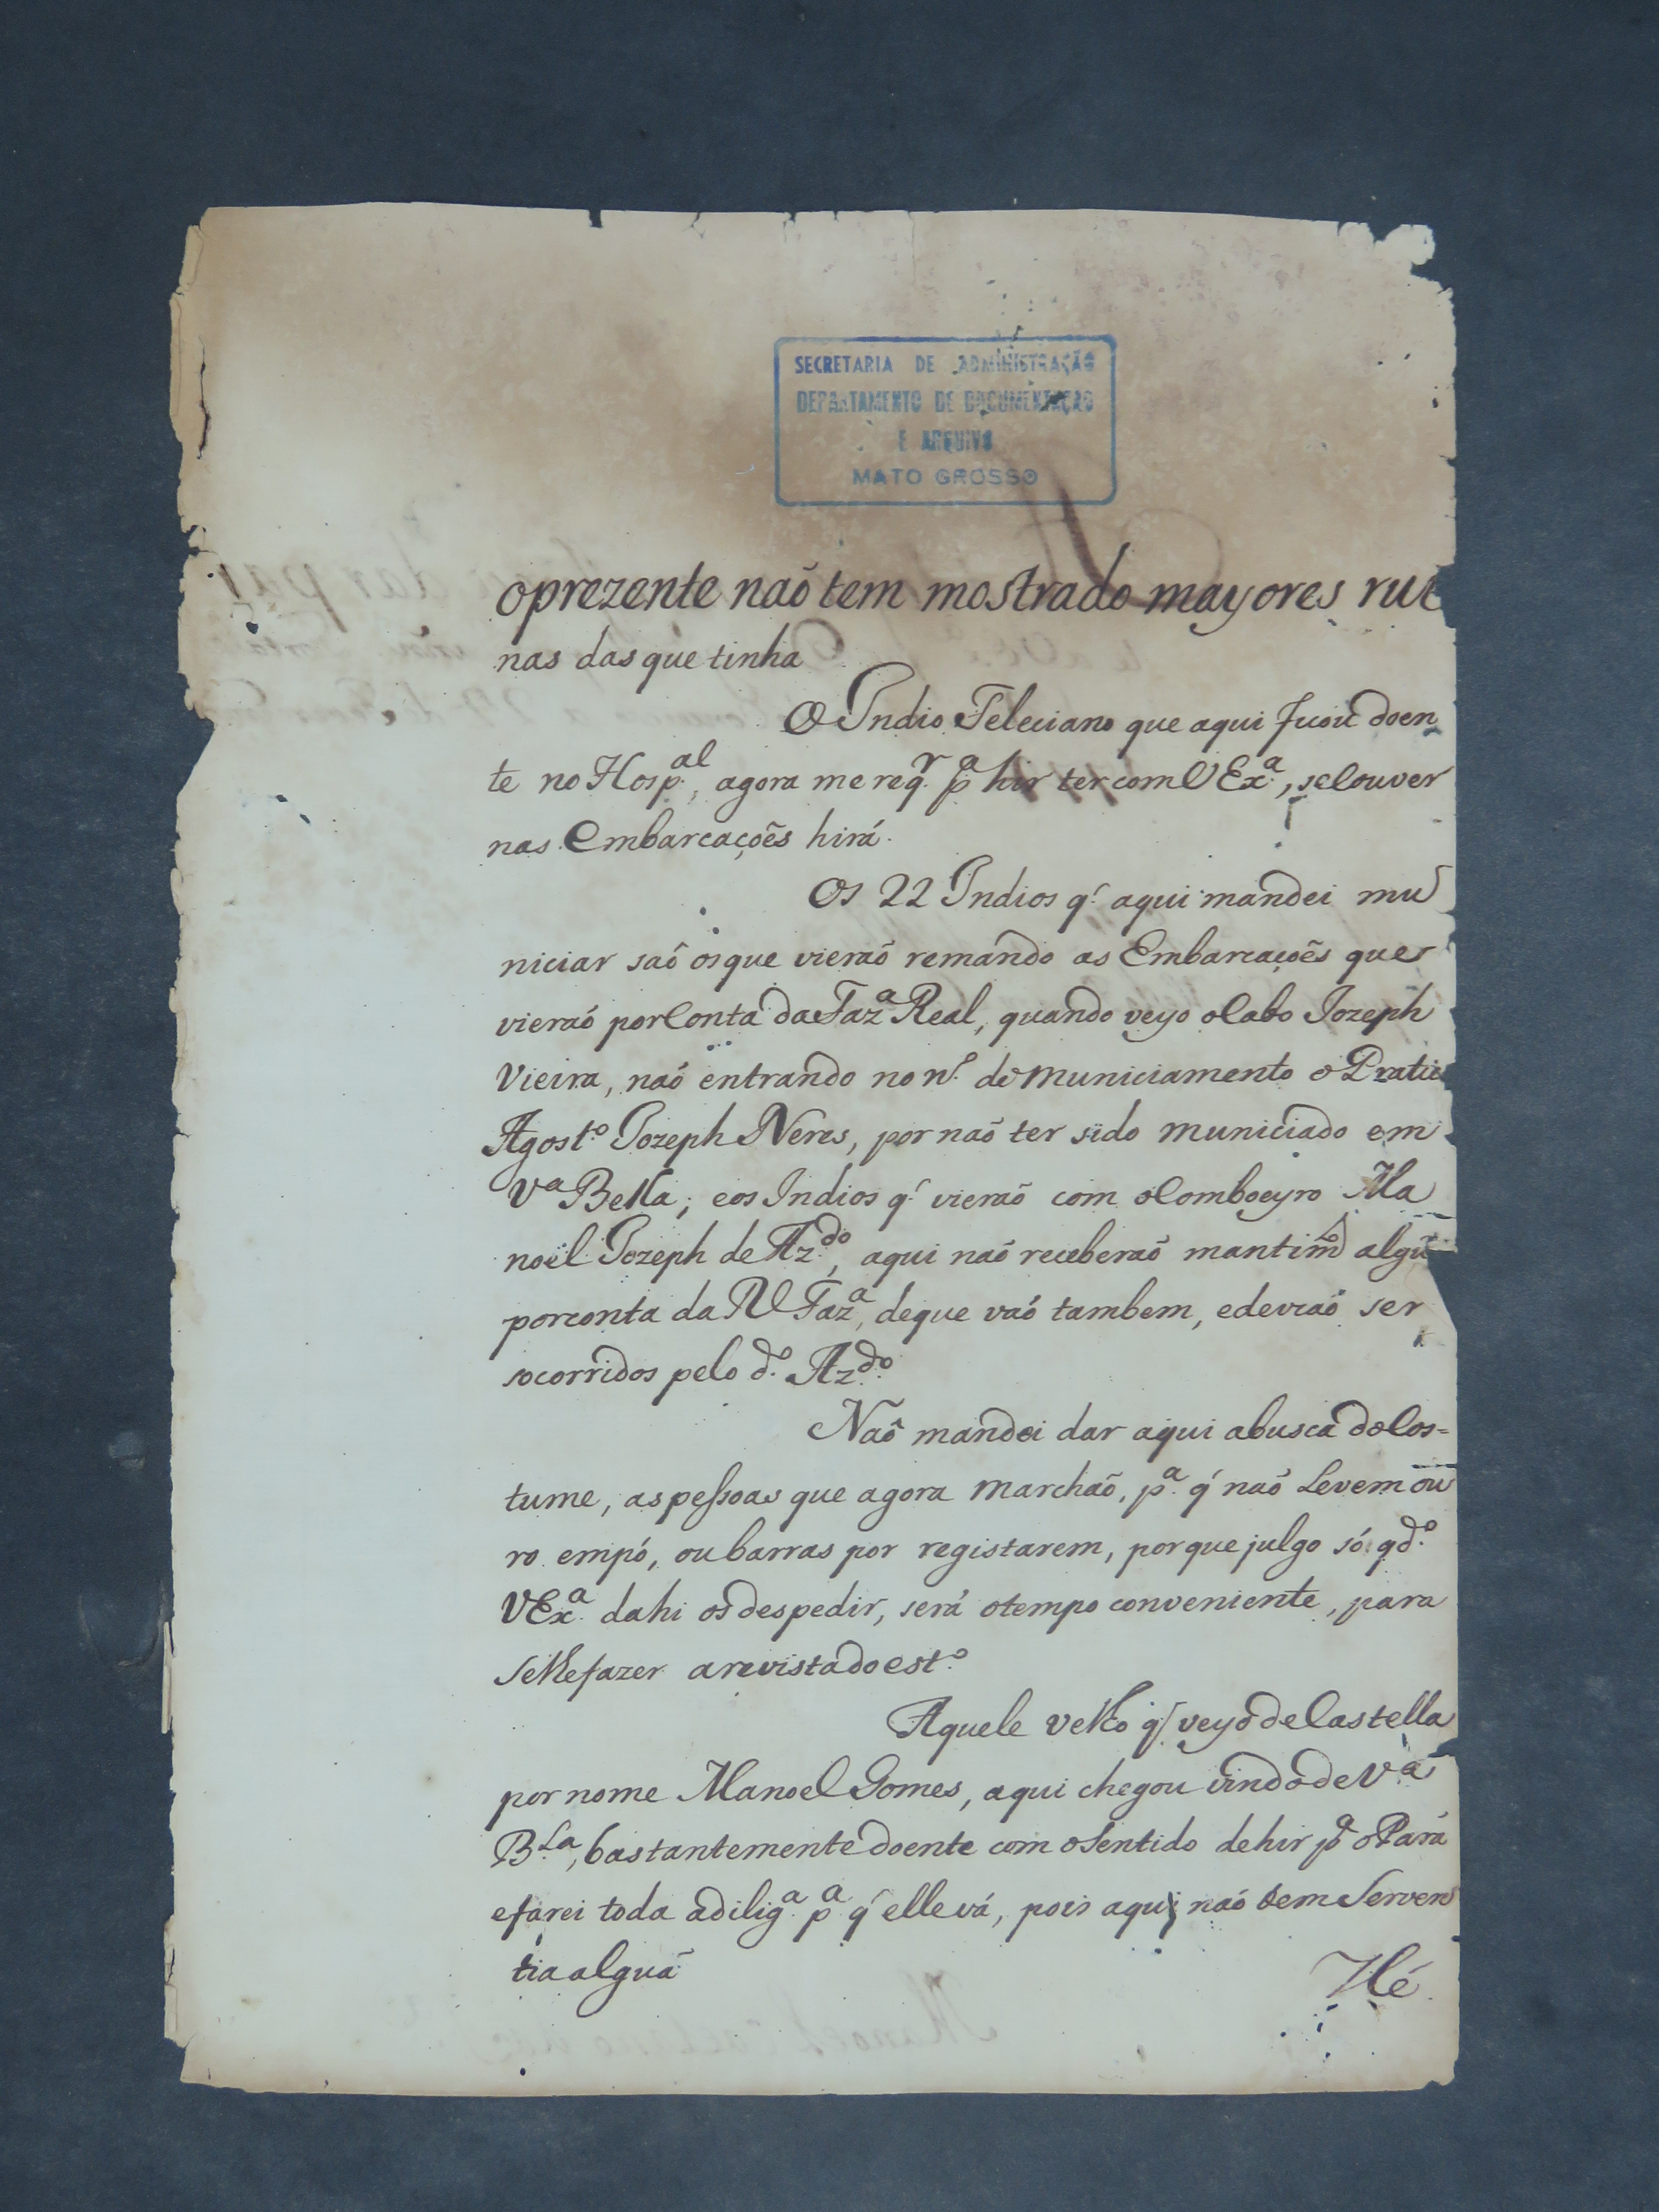 SECRETARIA DE ADMINISTRAÇÃO
DEPARTAMENTO DE DOCUMENTAÇÃO
E ARQUIVO
MATO GROSSO
oprezente naõ tem mostrado mayores rui
nas das que tinha
O Indio Feleciano que aqui ficou doen
te no Hosp.al, agora me req.r p.a hir ter com VEx.a, se couver
nas Embarcaçoẽs hirá.
Os 22 Indios q.' aqui mandei mu
niciar saõ os que vieraõ remando as Embarcaçoẽs que
vieraõ por Conta da Faz.a Real, quando veyo o Cabo Jozeph
Vieira, naõ entrando no n.º de municiamento o Pratic
Agost.º Jozeph Neres, por naõ ter sido municiado em
V.a Bella; e os Indios q.' vieraõ com o Comboeyro Ma
noel Jozeph de Az.do, aqui naõ receberaõ mantim.to algũ
por conta da Rl Faz.a, de que vaõ tambem, e devraõ ser
socorridos pelo d.º Az.do
Naõ mandei dar aqui abusca do Cos=
tume, as pessoas que agora marchaõ, p.a q' naõ Levem ou
ro empó, ou barras por registarem, porque julgo só qd.º
VEx.a dahi os despedir, será o tempo conveniente, para
se lhe fazer a revista do est.º
Aquele velho q' veyo de Castella
por nome Manoel Gomes, aqui chegou vindo de V.a
B.la, bastantemente doente com o Sentido de hir p.a o Pará
e farei toda a dilig.a p.a q' elle vá, pois aqui naõ tem Serven
tia algua
Hé